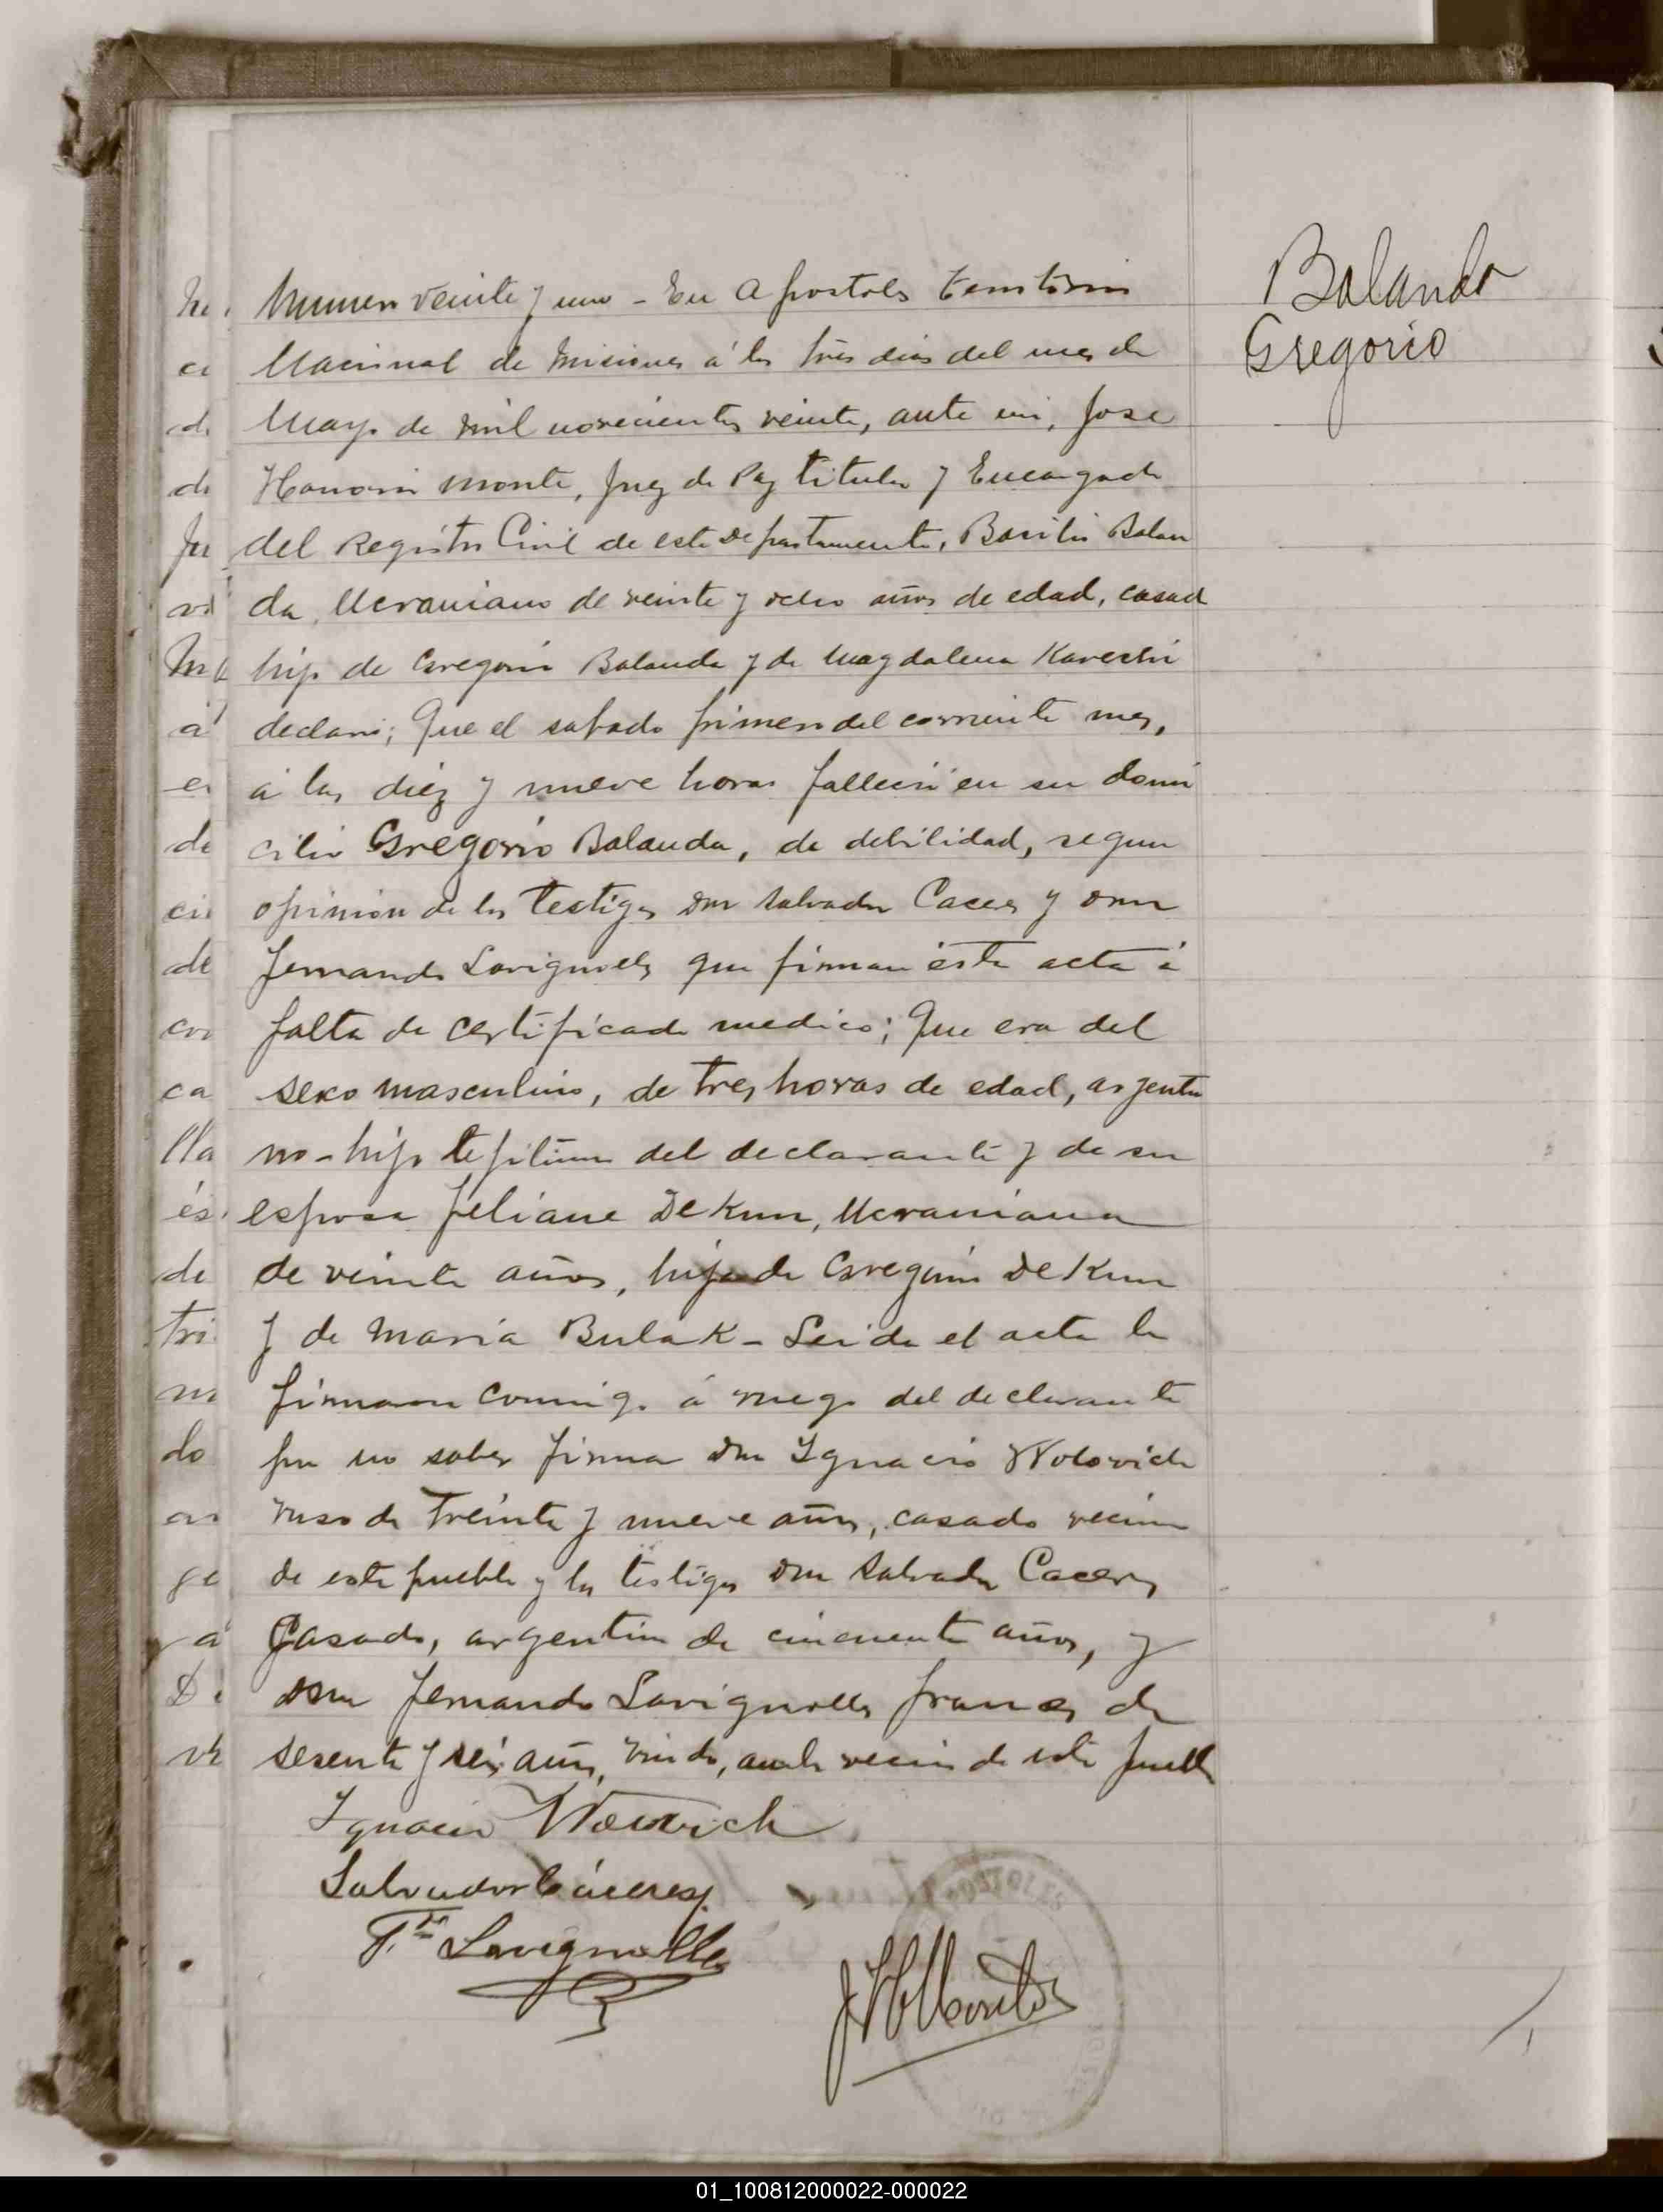 Balando
Gregorio
Numero veinte y uno - En Apostoles territorio
Nacional de Misiones á los tres dias del mes de
Mayo de mil novecientos veinte, ante mi, Jose
Honorio Monte, Juez de Paz titular y Encargado
del Registro Civil de este departamento, Basilio Balan
da, Ucraniano de veinte y ocho años de edad, casado
hijo de Gregorio Balanda y de Magdalena Kareski
declaró; Que el sabado primero del corriente mes,
á las diez y nueve horas falleció en su domi
cilio Gregorio Balanda, de debilidad, segun
opinion de los testigos don Salvador Caceres y don
Fernando Lavignolle que firman ésta acta á
falta de certificado medico; Que era del
sexo masculino, de tres horas de edad, argenti
no - hijo lejitimo del declarante y de su
esposa Feliane Dekun, Ucraniana
de veinte años, hija de Gregorio Dekun
y de Maria Bulak - Leida el acta la
firmaron conmigo á ruego del declarante
por no saber firmar don Ygnacio Wolovich
ruso de treinta y nueve años, casado vecino
de este pueblo y los testigos don Salvador Caceres
Casado, argentino de cincuenta años, y
don Fernando Lavignolle frances de
sesenta y seis años, viudo, ambos vecinos de este pueblo
Ygnacio
Salvador Cáceres
F. Lavignolle
J H Monte
01_100812000022-000022